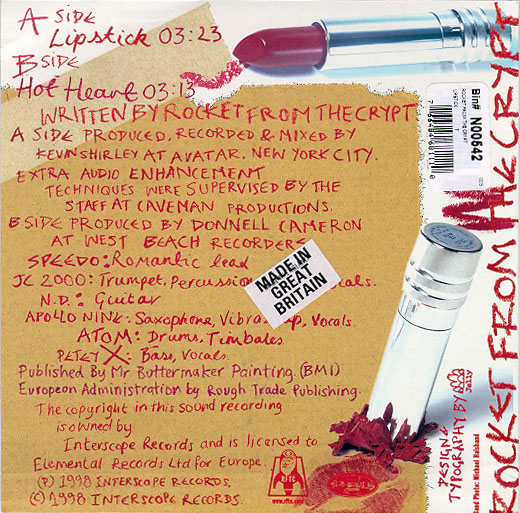 A SIDE
Lipstick 03:23
B SIDE
Hot Heart 03:13
WRITTEN BY ROCKET FROM THE CRYPT
A SIDE PRODUCED, RECORDED & MIXED BY
KEVIN SHIRLEY AT AVATAR, NEW YORK CITY.
EXTRA AUDIO ENHANCEMENT
TECHNIQUES WERE SUPERVISED BY THE
STAFF AT CAVEMAN PRODUCTIONS.
B SIDE PRODUCED BY DONNELL CAMERON
AT WEST BEACH RECORDERS
SPEEDO: Romantic lead
JC 2000: Trumpet, Percussion
N.D.: Guitar
APOLLO NINE: Saxophone, Vibra, Vocals.
ATOM: Drums, Timbales
PETEY X: Bass, Vocals.
Published By Mr Buttermaker Painting. (BMI)
European Administration by Rough Trade Publishing.
The copyright in this sound recording
is owned by
Interscope Records and is licensed to
Elemental Records Ltd for Europe.
(P) 1998 INTERSCOPE RECORDS.
(C) 1998 INTERSCOPE RECORDS.
MADE IN
GREAT
BRITAIN
RFTC
www.rftc.com
DESIGN &
TYPOGRAPHY BY
Jolly
ROCKET FROM THE CRYPT
Bin# N000542
ROCKET FROM THE CRYPT
LIPSTICK